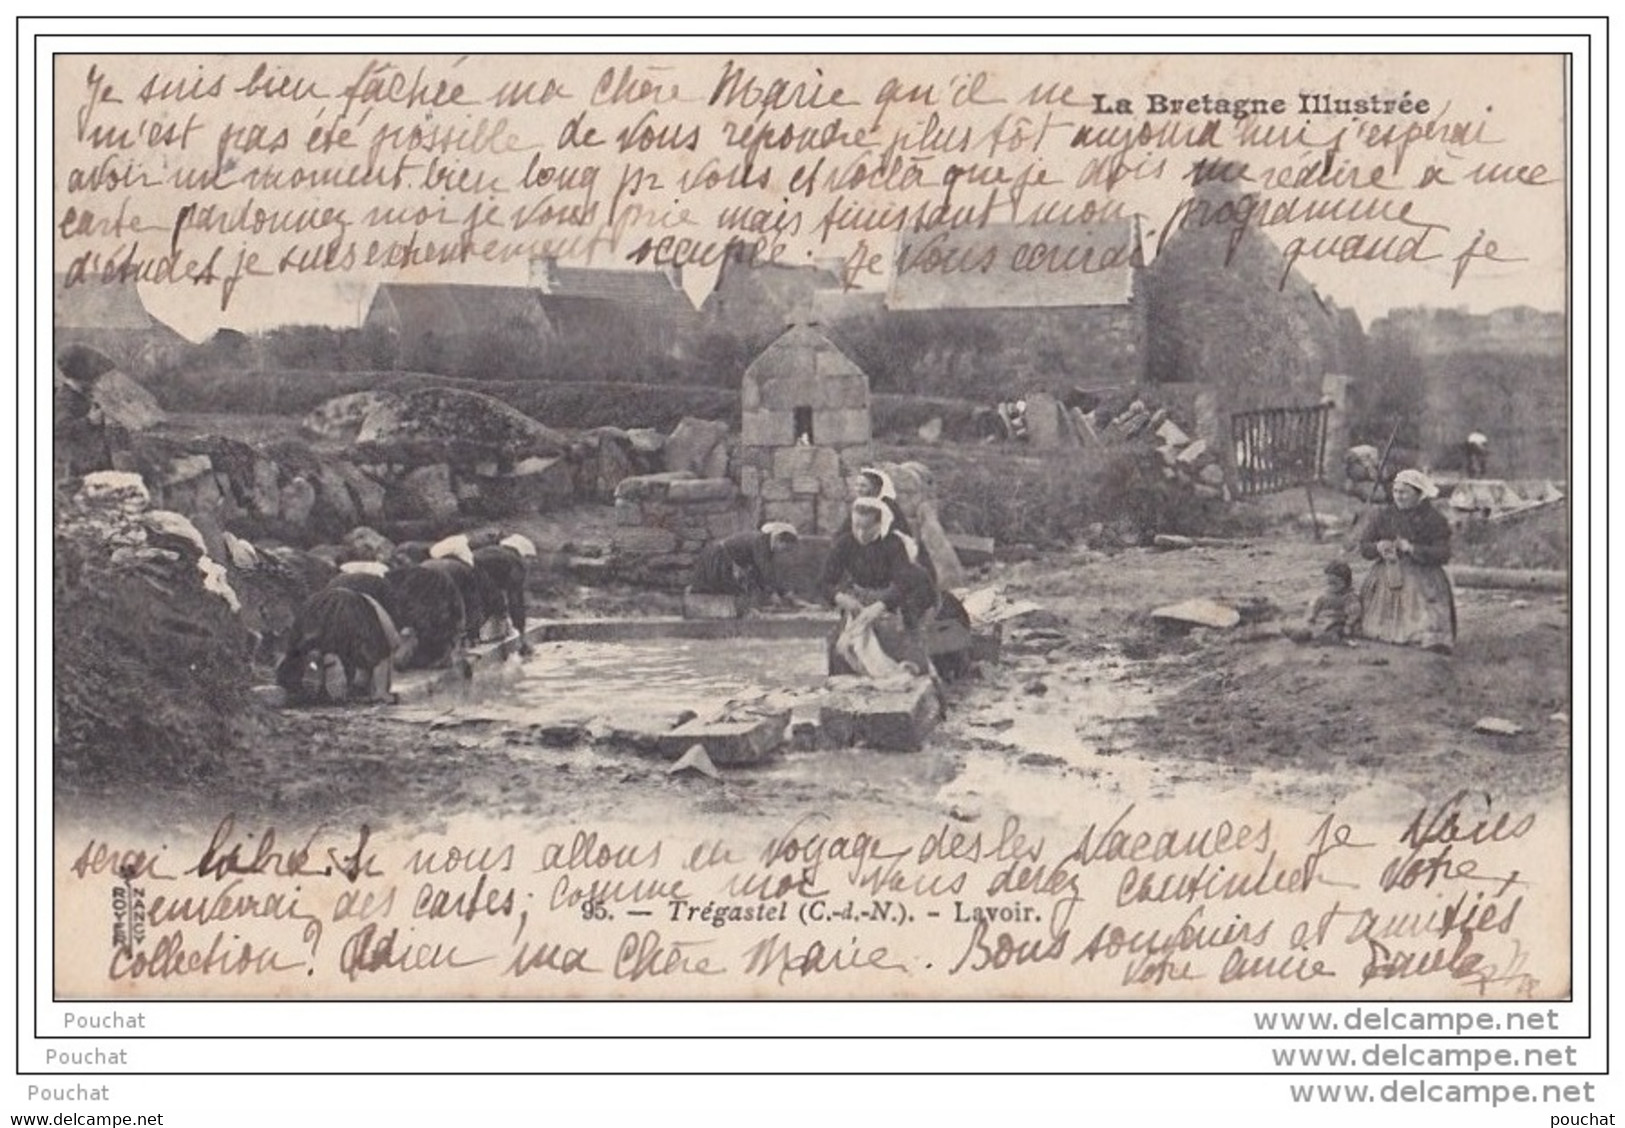 Je suis bien fâchée ma chère Marie qu'il ne
La Bretagne Illustrée
m'est pas été possible de vous répondre plus tôt aujourd'hui j'espérai
avoir un moment bien long pr vous et voilà que je dois me réduire à une
carte pardonnez moi je vous prie mais finissant mon programme
d'études je suis extrêmement occupée. Je vous écrirai quand je
serai libre. Si nous allons en voyage des les vacances je vous
enverrai des cartes; comme moi vous devez continuer votre
95. — Trégastel (C.-d.-N.). - Lavoir.
ROYER NANCY
collection? Adieu ma chère Marie. Bons souvenirs et amitiés
votre amie Paula
Pouchat
www.delcampe.net
Pouchat
www.delcampe.net
Pouchat
www.delcampe.net
www.delcampe.net
pouchat